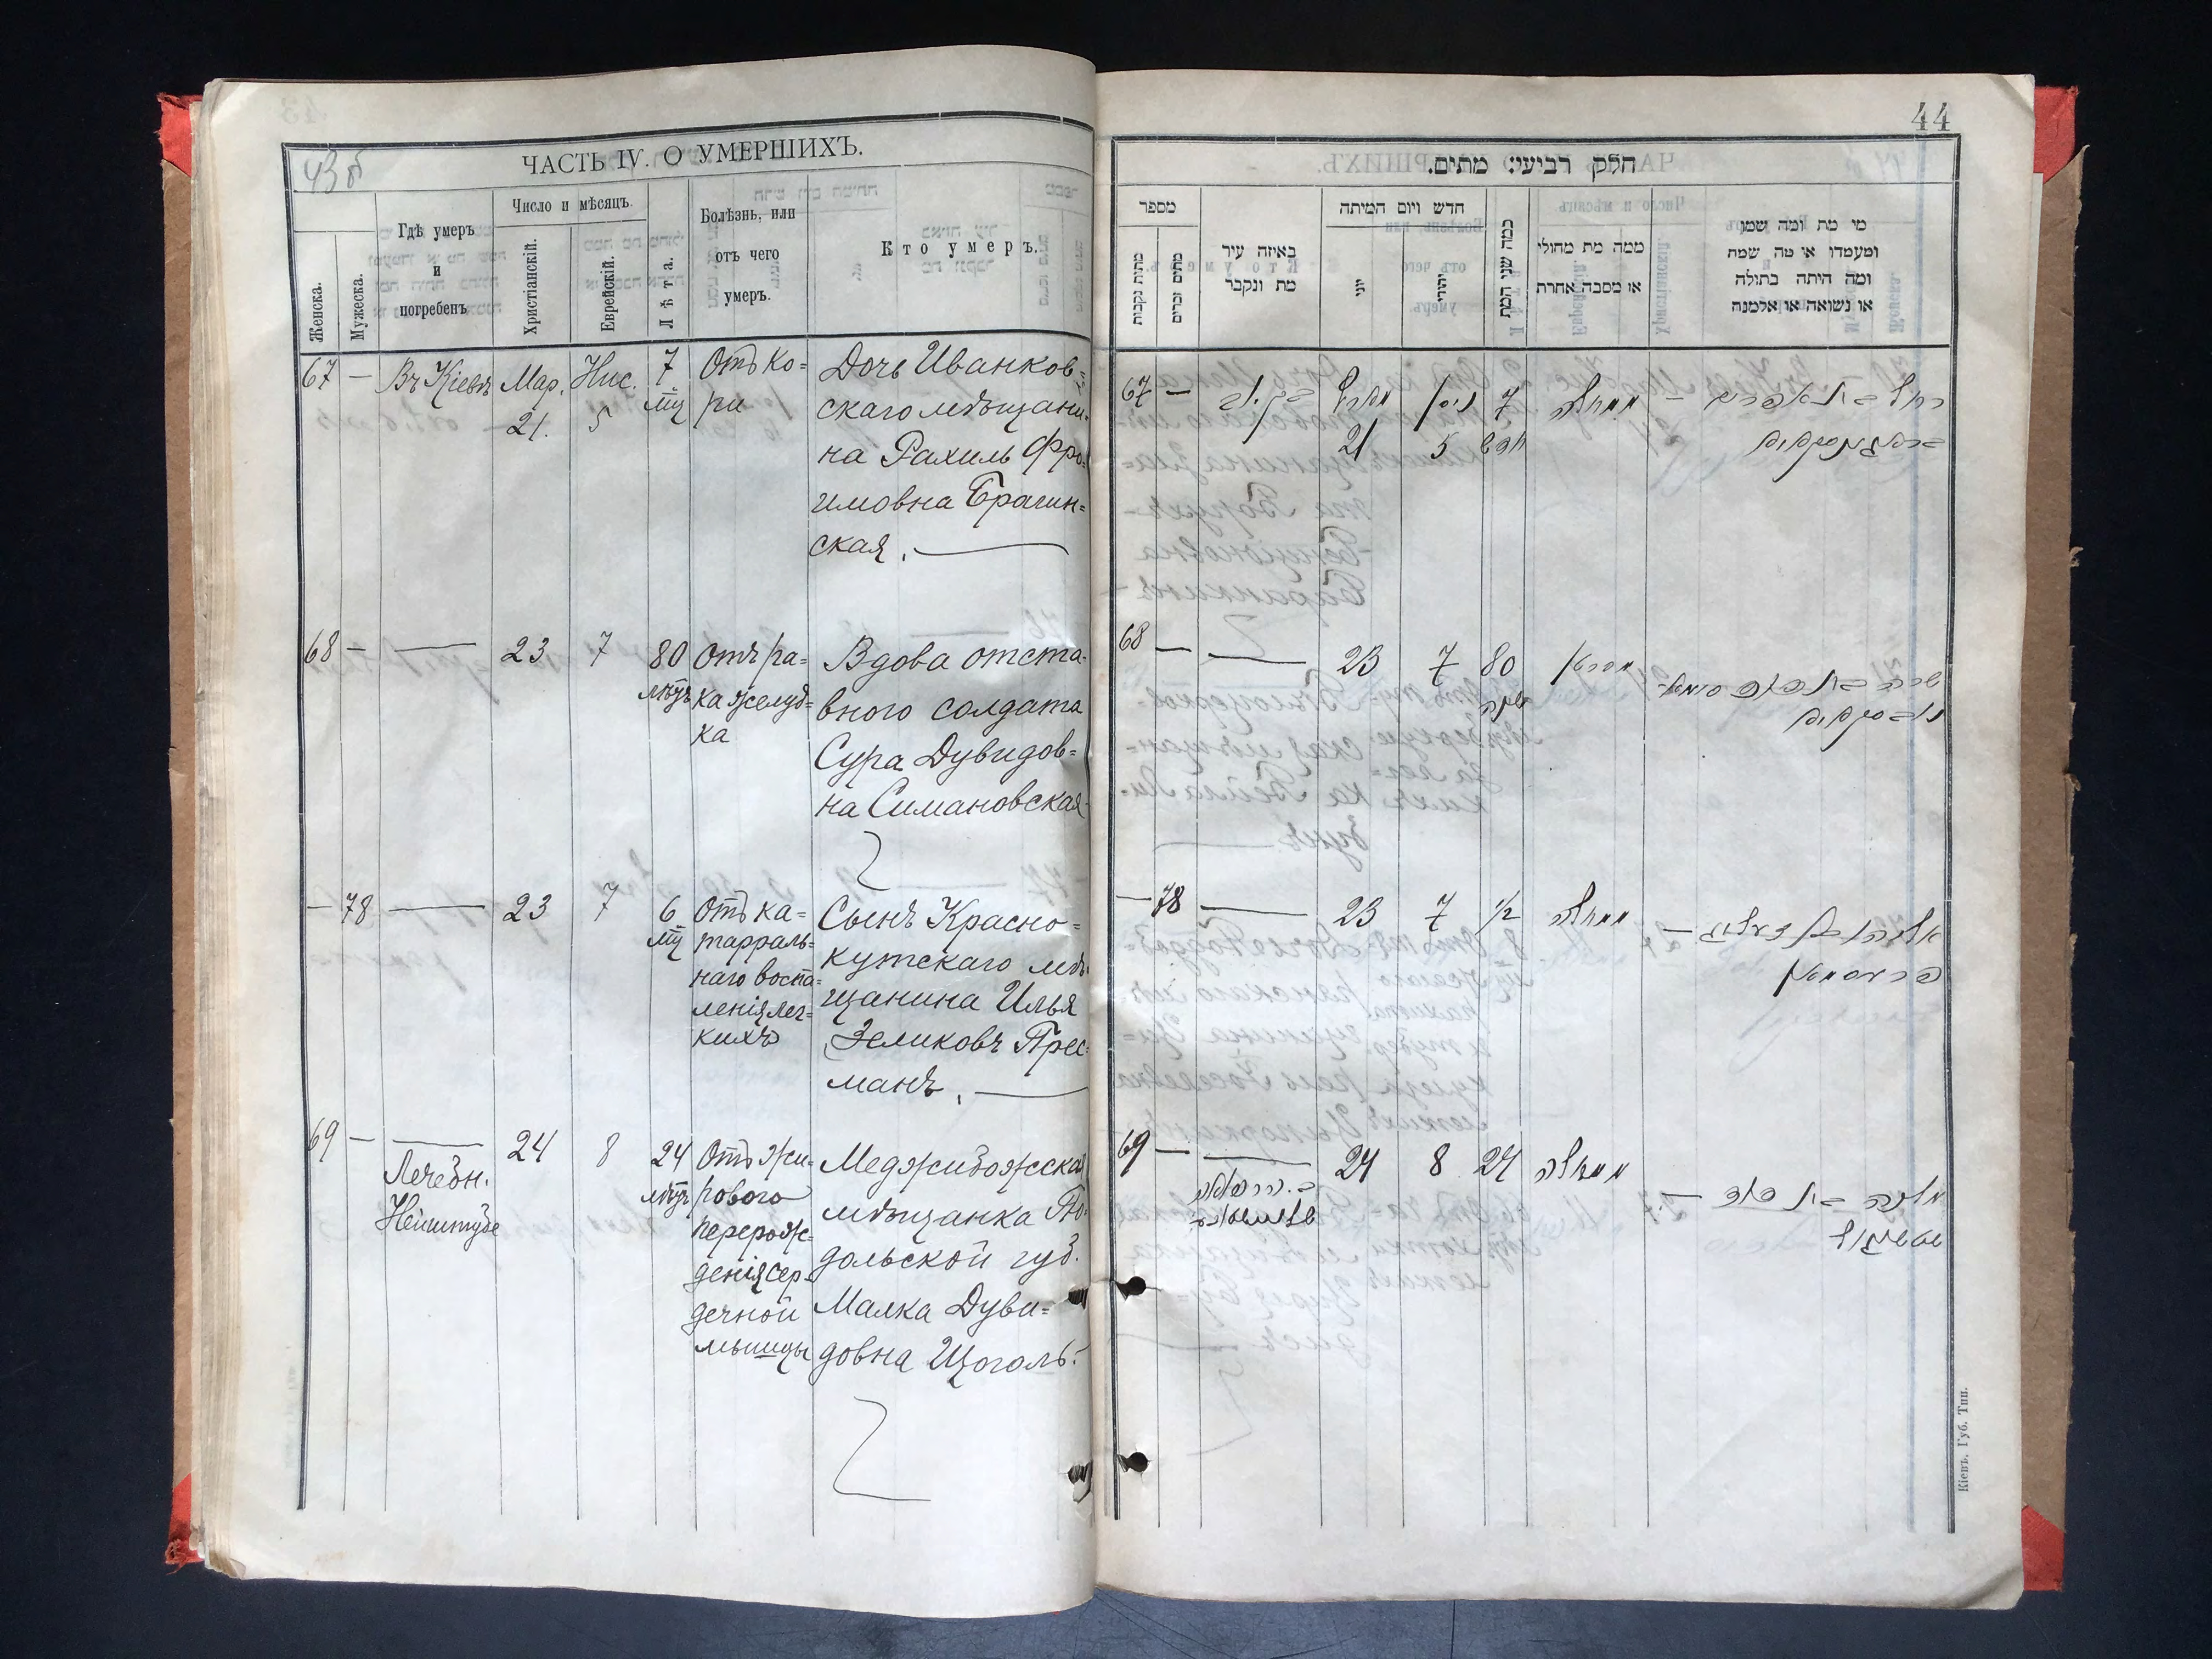 43б
ЧАСТЬ IV. О УМЕРШИХЪ.
Женска.
Мужеска.
Гдѣ умеръ
и
погребенъ
Число и мѣсяцъ.
Христіанскій.
Еврейскій.
Лѣта.
Болѣзнь, или
отъ чего
умеръ.
Кто умеръ.
67 — Въ Кіевѣ Мар. 21. Нис. 5 7 мц
Отъ ко=
ри
Дочь Иванков=
скаго мѣщани=
на Рахиль Фро=
имовна Брагин=
ская.
68 — — 23 7 80 лѣтъ
Отъ ра=
ка желуд=
ка
Вдова отста=
вного солдата
Сура Дувидов=
на Симановская
— 78 — 23 7 6 мц
Отъ ка=
тарраль=
наго воспа=
ленія лег=
кихъ
Сынъ Красно=
кутскаго мѣ=
щанина Илья
Зеликовъ Прес=
манъ.
69 — —
Лечебн.
24 8 24 лѣтъ
Отъ жи=
рового
перерож=
денія сер=
дечной
мышцы
Меджибожская
мѣщанка По=
дольской губ.
Малка Дуви=
довна Щоголь.
44
חלק רביעי: מתים.
מספר
מתות נקבות
מתים זכרים
באיזה עיר
מת ונקבר
חדש ויום המיתה
יוני
יהודי
כמה שני המת
ממה מת מחולי
או מסבה אחרת
מי מת ומה שמו
ומעמדו או מה שמה
ומה היתה בתולה
או נשואה או אלמנה
67 — מארץ 21 ניסן 5 7 חדש ממחלה
רחל בת אפרים —
68 — — 23 7 80 שנה
שרה בת דוד
— 78 — 23 7 1/2 ממחלה
אליהו בן זעליג —
פרעסמאן
69 — — 24 8 24 ממחלה
מלכה בת דוד —
שטשיגול
Кіевъ. Губ. Тип.